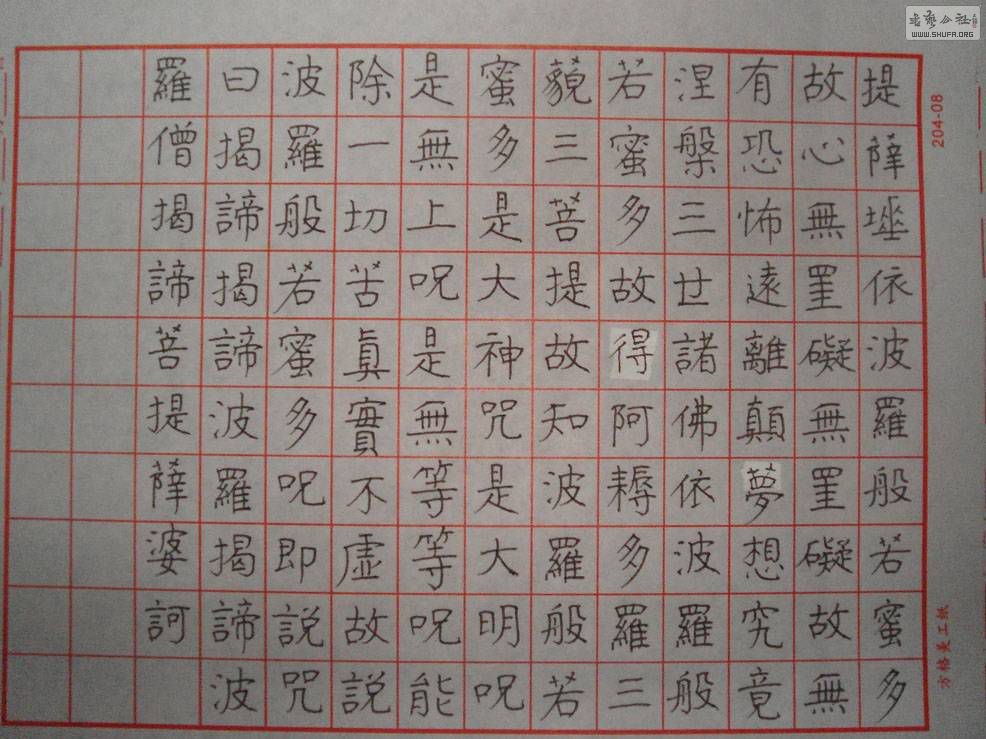 提薩埵依波羅般若蜜多
故心無罣礙無罣礙故無
有恐怖遠離顛夢想究竟
涅槃三世諸佛依波羅般
若蜜多故得阿耨多羅三
藐三菩提故知波羅般若
蜜多是大神咒是大明呪
是無上呪是無等等呪能
除一切苦眞實不虛故説
波羅般若蜜多呪即説咒
曰揭諦揭諦波羅揭諦波
羅僧揭諦菩提薩婆訶
204-08
方格美工紙
WWW.SHUFA.ORG